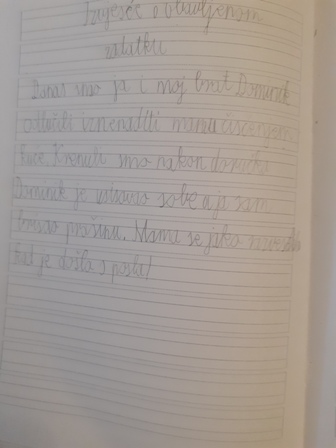 Izvješće o obavljenom
zadatku
Danas smo ja i moj brat Dominik
odlučili iznenaditi mamu čišćenjem
kuće. Krenuli smo nakon doručka.
Dominik je usisavao sobe a ja sam
brisao prašinu. Mama se jako
kad je došla s posla!